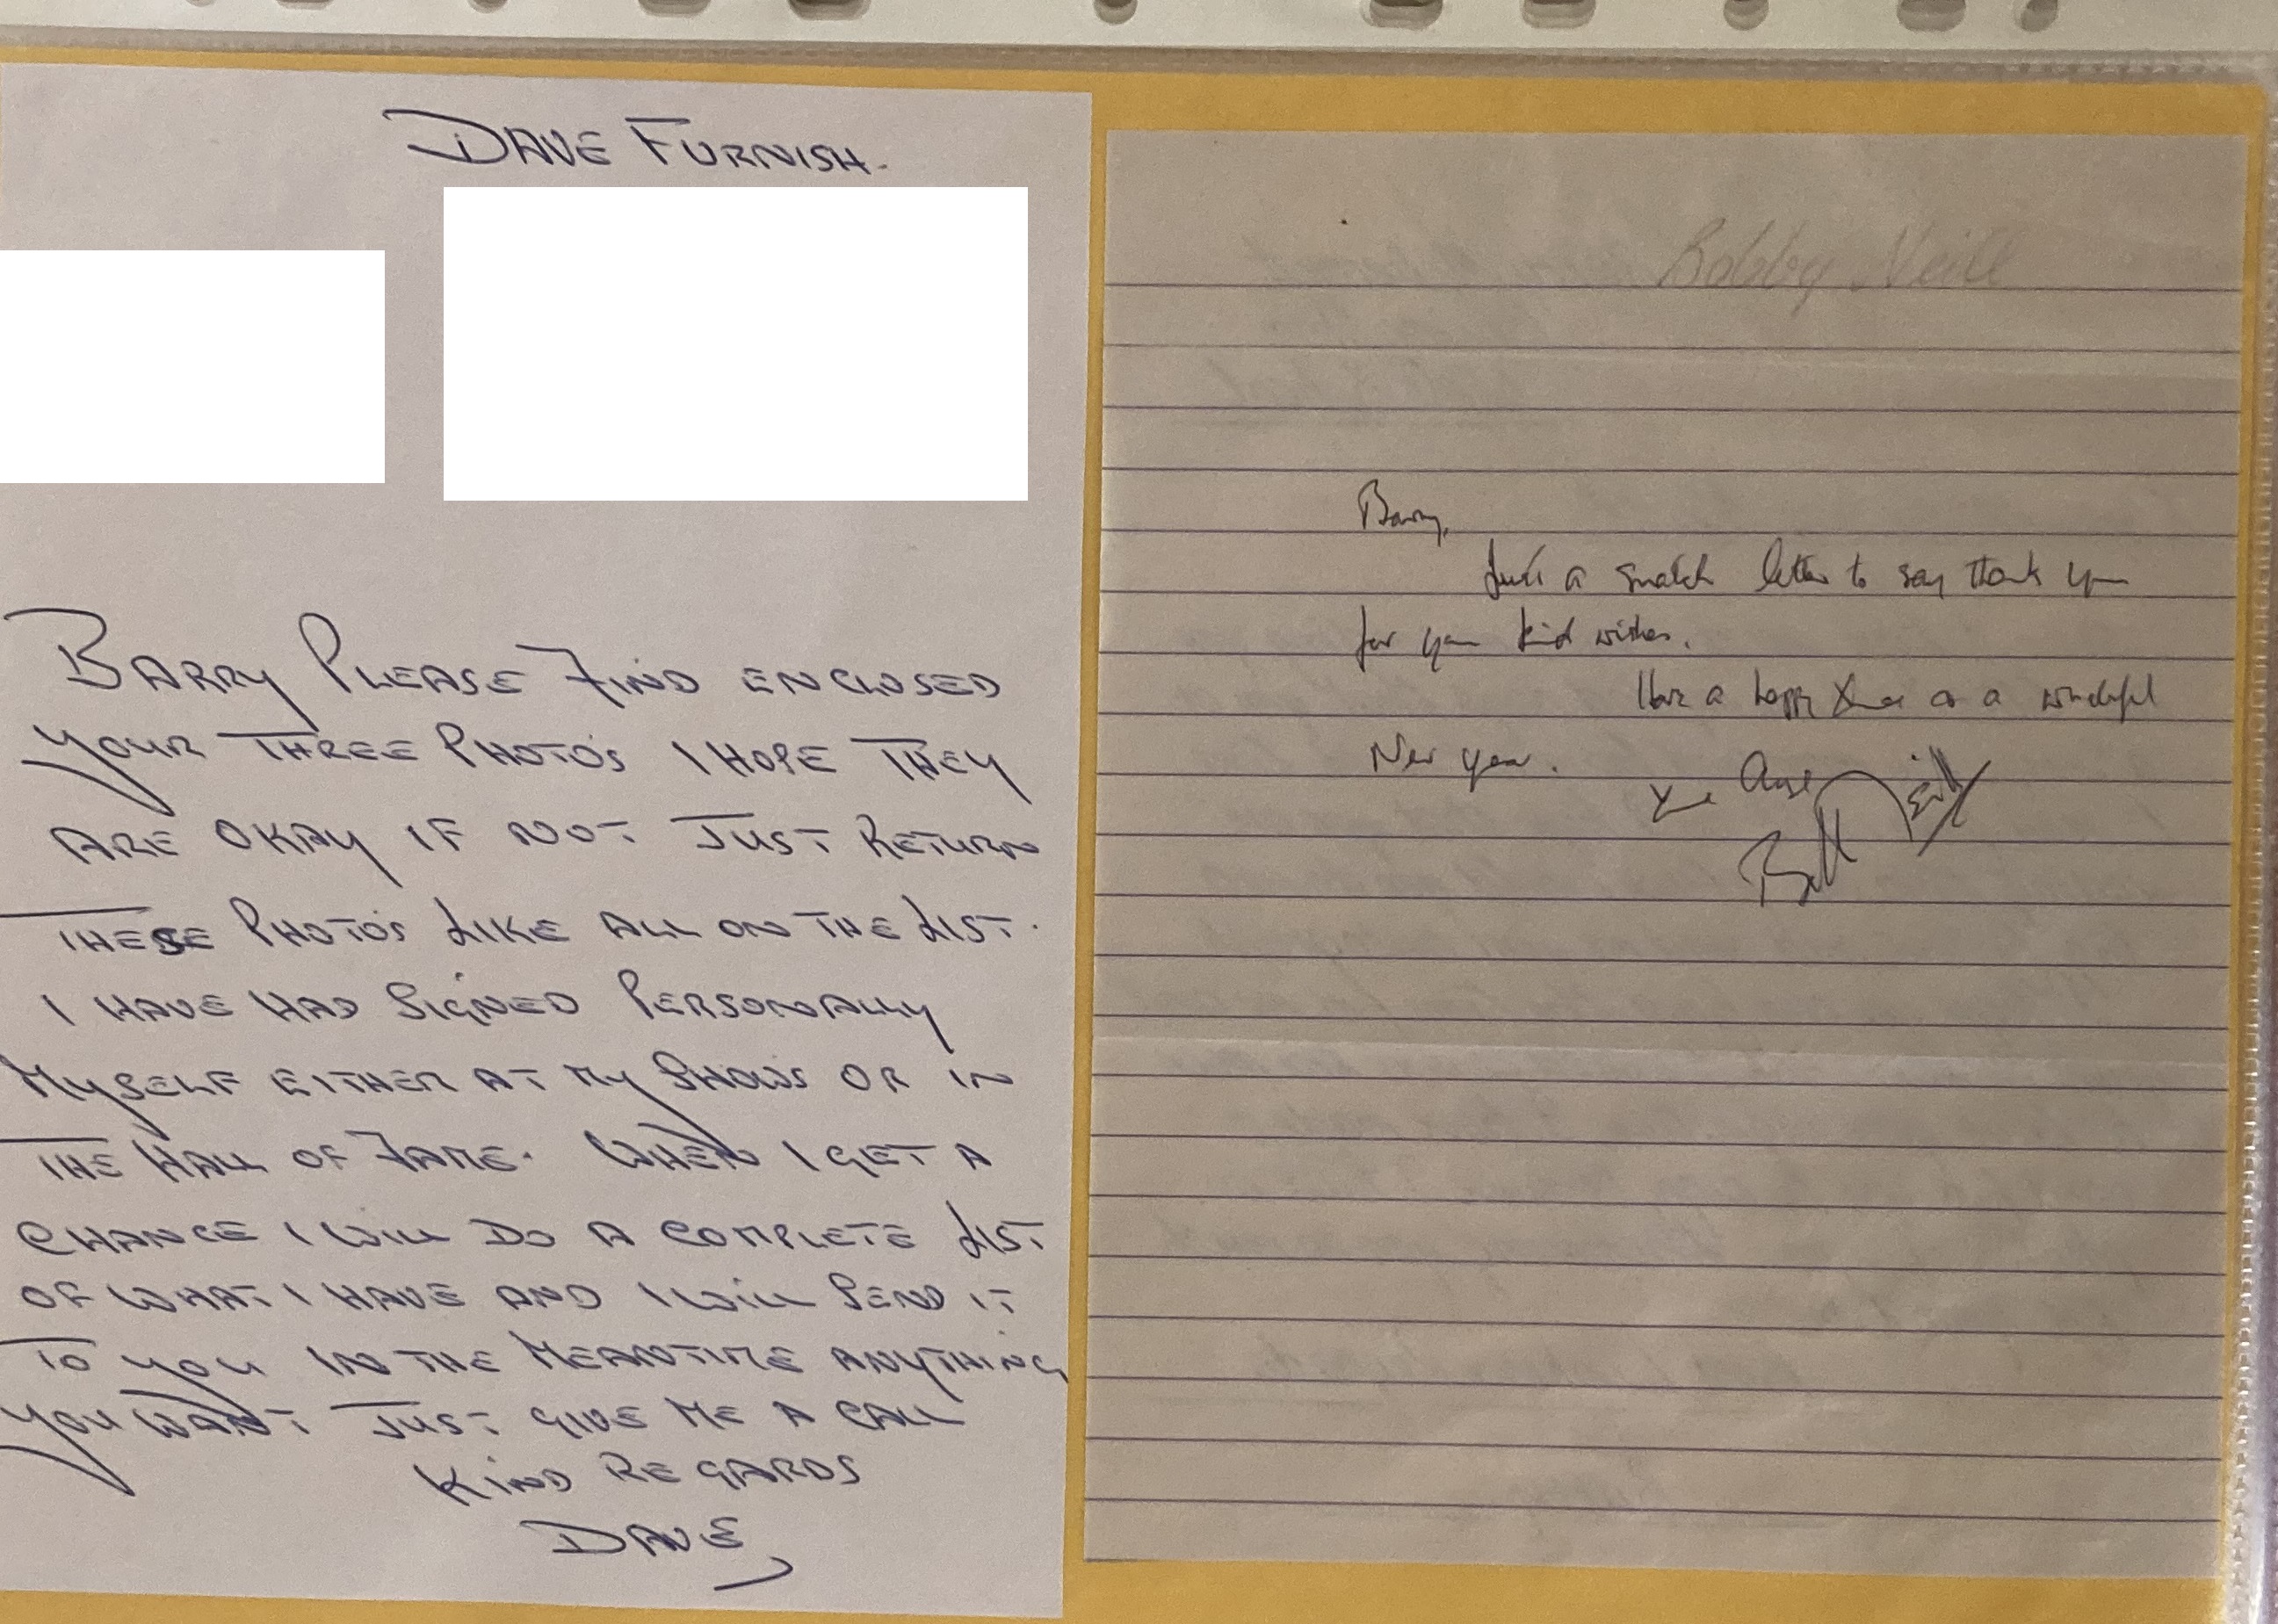 DAVE FURNISH.
BARRY PLEASE FIND ENCLOSED
YOUR THREE PHOTO'S I HOPE THEY
ARE OKAY IF NOT JUST RETURN
THESE PHOTO'S LIKE ALL ON THE LIST.
I HAVE HAD SIGNED PERSONALLY
MYSELF EITHER AT MY SHOWS OR IN
THE HALL OF FAME. WHEN I GET A
CHANCE I WILL DO A COMPLETE LIST
OF WHAT I HAVE AND I WILL SEND IT
TO YOU IN THE MEANTIME ANYTHING
YOU WANT JUST GIVE ME A CALL
KIND REGARDS
DAVE
Bobby Neill
Barry,
Just a letter to say thank you
for your kind wishes.
Have a happy a wonderful
New year.